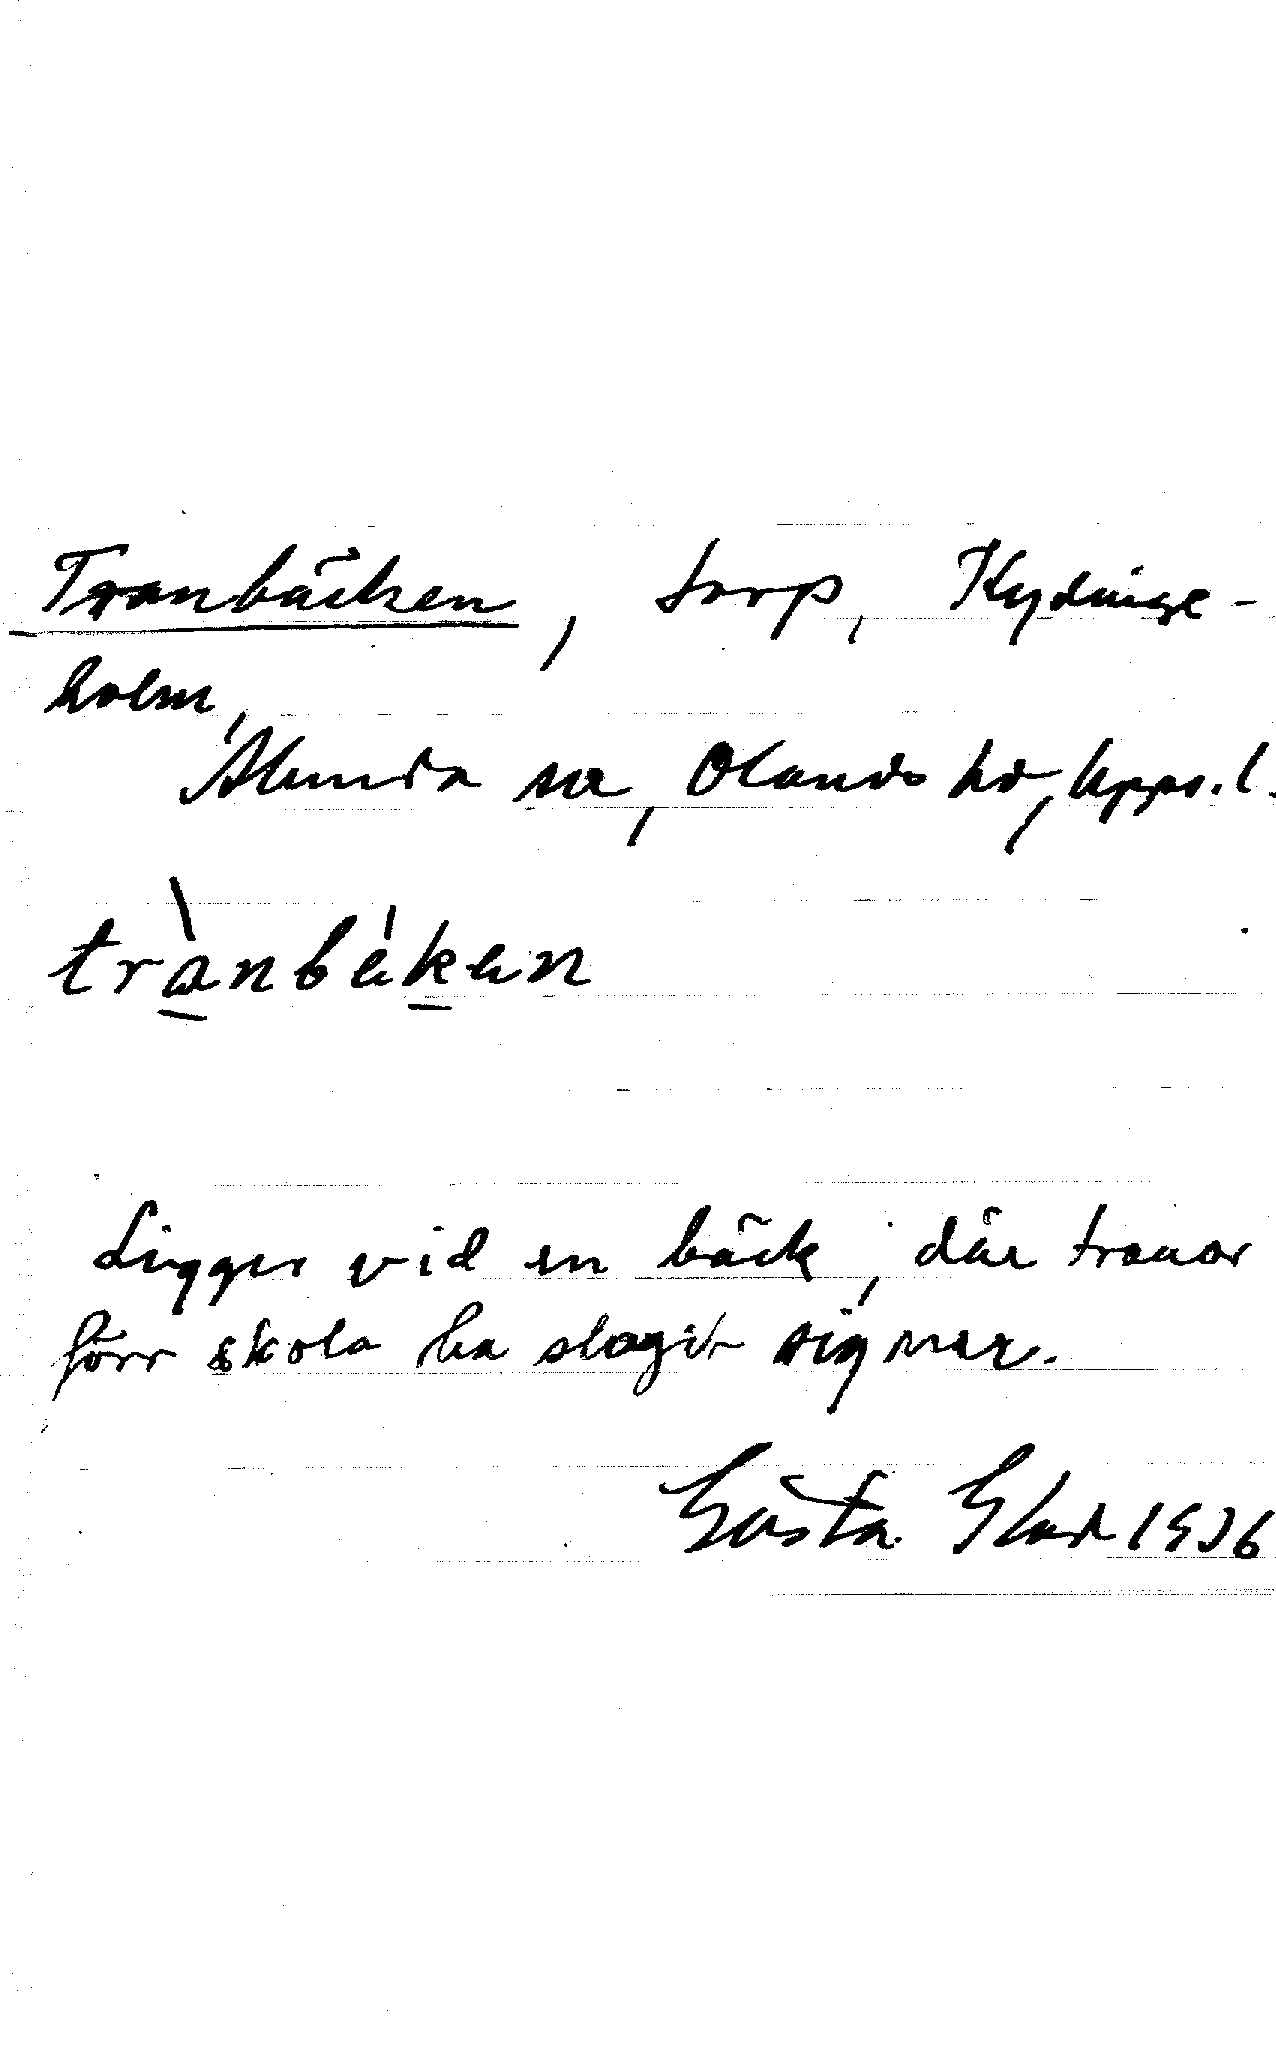 Tranbäcken, torp, Kydinge-
holm,
Alunda sn, Olands hd, Upps. l.
trànbékan
Ligger vid en bäck, där tranor
förr skola ha slagit sig ner.
Gösta Glad 1936